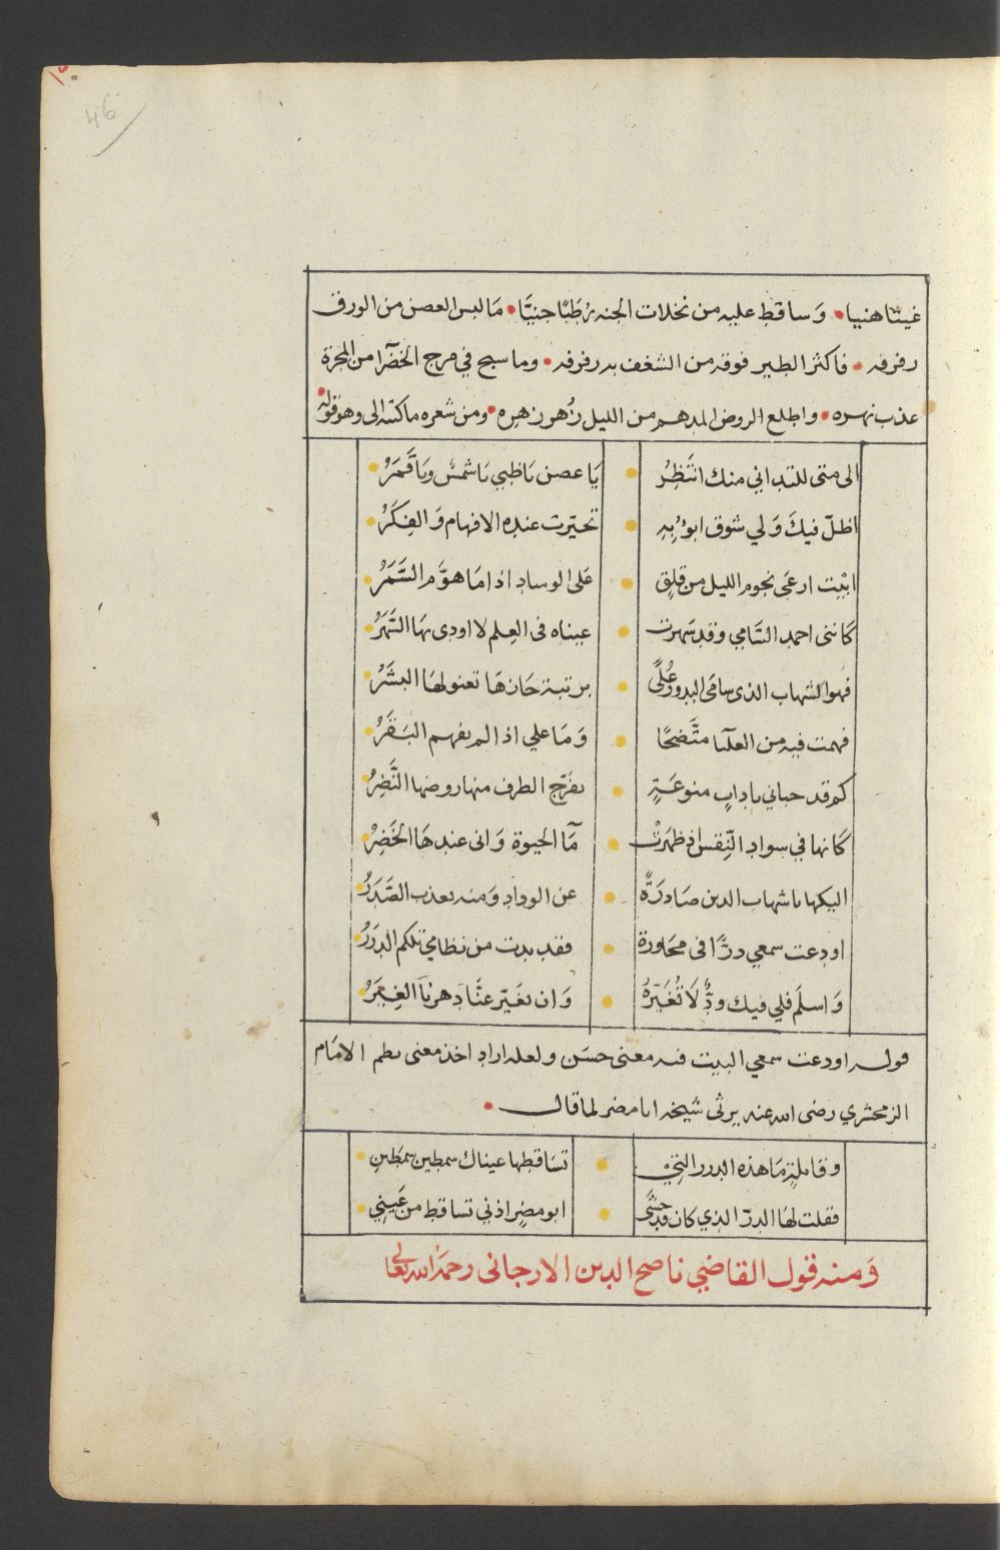 46
غيثا هنيا • وَساقط عليه من نخلات الجنه رُطَبًا جنيَّا • مَا لبس الغصن من الورق
رفرفه • فاكثر الطير فوقه من الشغف به رفرفه • وما سبح في مرج الخضرآ من المجرة
عذب نهره • واطلع الروض المدهم من الليل زُهور زهره • ومن شعره ما كتبه الى وهو قوله
الى متى للتداني منك انتَظِرُ • يَا غصن يَاظبي يَاشمسٌ ويَا قَمَرُ
اظلّ فيكَ وَلي شوق ابوُّبدِ • تحيّرت عنده الافهام وَالفِكَرُ
ابيْت ارعَى نجوم الليل من قلِقٍ • عَلى الوساد اذا مَا هوَّم السَّمَرُ
كَاننى احمد السَّامي وقد سَهرت • عيناه فى العِلم لا اودى بهَا السَّهَرُ
فهو الشهاب الذى سامَى البدور عُلًى • برتبة حَازهَا تعنو لهَا البشَرُ
فهمت فيه من العلَيا متَّضحًا • وَمَا علي اذا لم يفهم البَقَرُ
كم قد حباني باداٍب منوعَةٍ • يفرّج الطرف منها روضها النَّضِرُ
كَانها في سواد النِّقس اذ ظهَرتْ • مَآ الحيوة وَانى عندهَا الخَضِرُ
اليكها يا شهاب الدين صَادرَةً • عن الوداد وَمنه يعذب الصَّدَرُ
اودعت سمعي درًّا فى محَاورة • فقد بدت من نظامي تلكم الدرَرُ
وَاسلَم فلي فيك ودٌّ لَا تُغَيّرهُ • وَان تغَيّر عنَّا دَهرنَا الغِيَرُ
قوله اودعت سمعي البيت فيه معنى حسَن ولعله اراد اخذ معنى نظم الامَام
الزمخشري رضى الله عنه يرثى شيخه ابا مضر لما قال •
وقائلةٍ مَا هذه الدرر التى • تسَاقطها عيناك سمطين سمطَينِ
فقلت لهَا الدرّ الذي كان قد حشَى • ابو مضٍر اذني تساقط من عَينِي
وَمنه قول القاضي ناصح الدين الارجانى رحمَه الله تعَالى